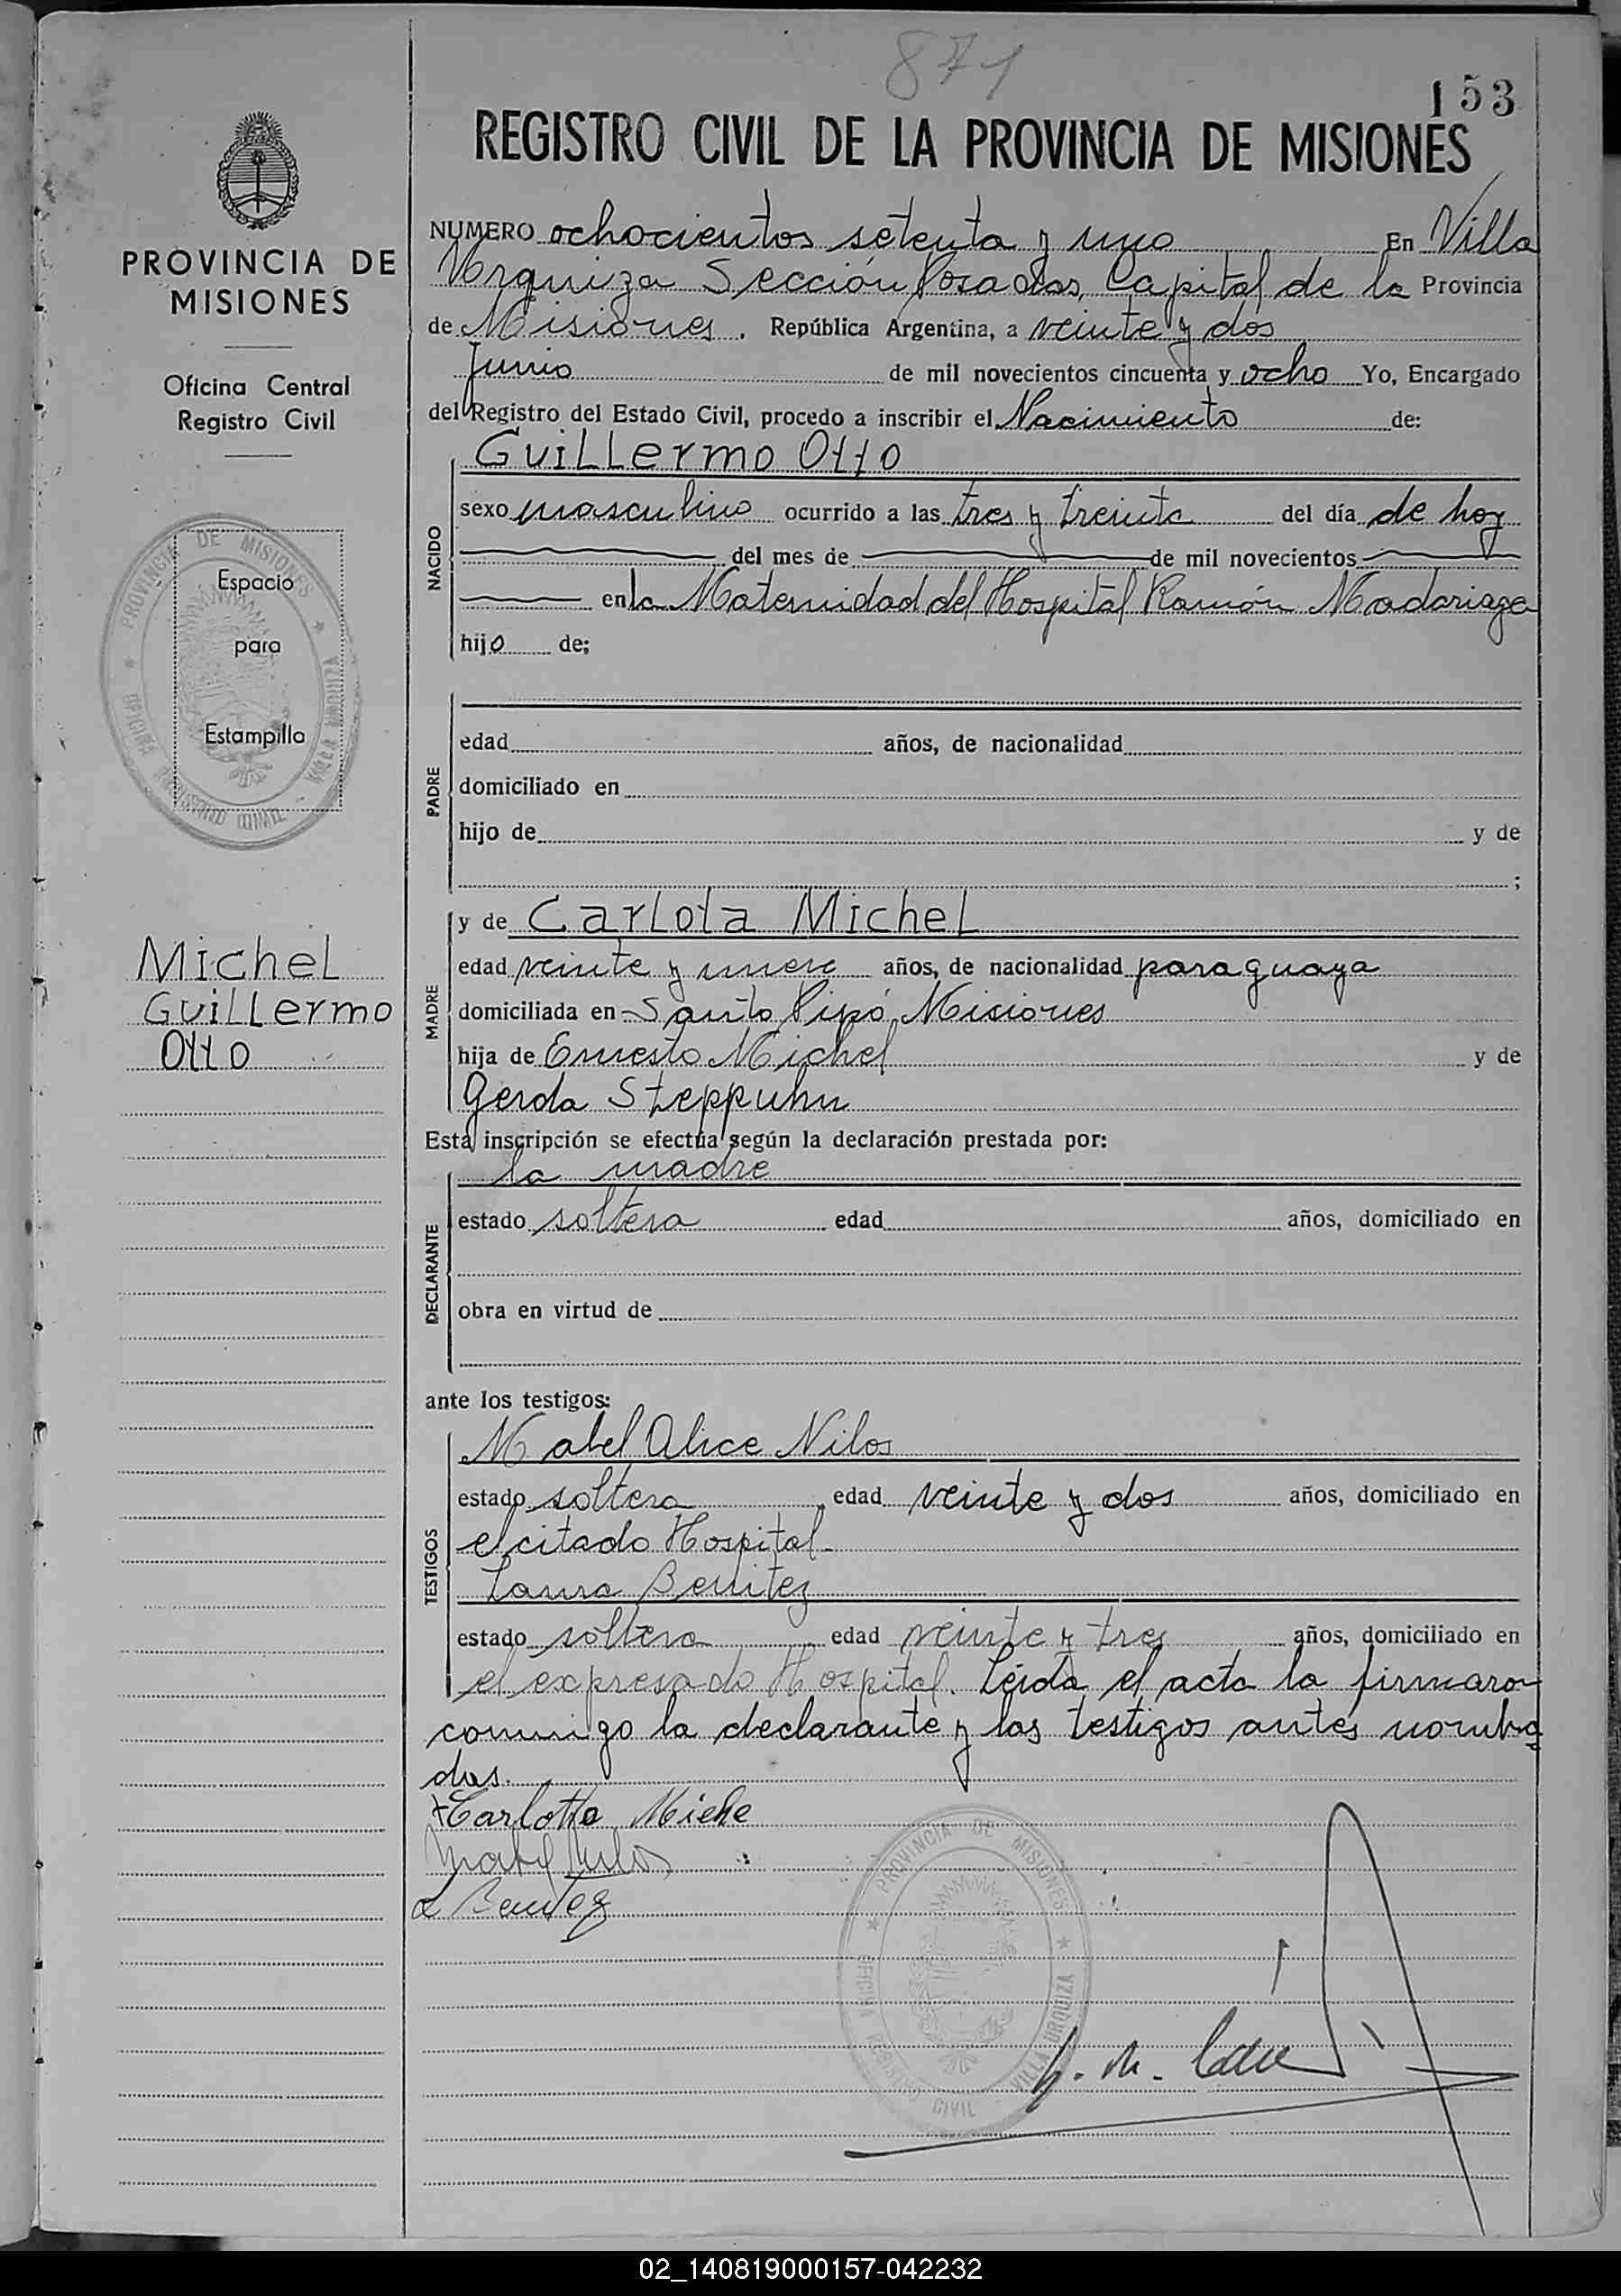 871
153
REGISTRO CIVIL DE LA PROVINCIA DE MISIONES
PROVINCIA DE
MISIONES
Oficina Central
Registro Civil
PROVINCIA DE MISIONES
OFICINA REGISTRO CIVIL - VILLA URQUIZA
Espacio
para
Estampilla
Michel
Guillermo
Otto
NUMERO ochocientos setenta y uno En Villa
Urquiza Sección Posadas, Capital de la Provincia
de Misiones. República Argentina, a veinte y dos
Junio de mil novecientos cincuenta y ocho Yo, Encargado
del Registro del Estado Civil, procedo a inscribir el Nacimiento de:
Guillermo Otto
NACIDO
sexo masculino ocurrido a las tres y treinta del día de hoy
del mes de de mil novecientos
en la Maternidad del Hospital Ramón Madariaga
hijo de;
PADRE
edad años, de nacionalidad
domiciliado en
hijo de y de
;
MADRE
y de Carlota Michel
edad veinte y nueve años, de nacionalidad paraguaya
domiciliada en Santo Pipó, Misiones
hija de Ernesto Michel y de
Gerda Steppuhn
Esta inscripción se efectúa según la declaración prestada por:
DECLARANTE
la madre
estado soltera edad años, domiciliado en
obra en virtud de
ante los testigos:
TESTIGOS
Mabel Alice Nilos
estado soltera edad veinte y dos años, domiciliado en
el citado Hospital
Laura Benitez
estado soltera edad veinte y tres años, domiciliado en
el expresado Hospital. Leída el acta la firmaron
conmigo la declarante y las testigos antes nombra
das.
Carlotta Miche
L Benitez
PROVINCIA DE MISIONES
OFICINA REGISTRO CIVIL - VILLA URQUIZA
02_140819000157-042232